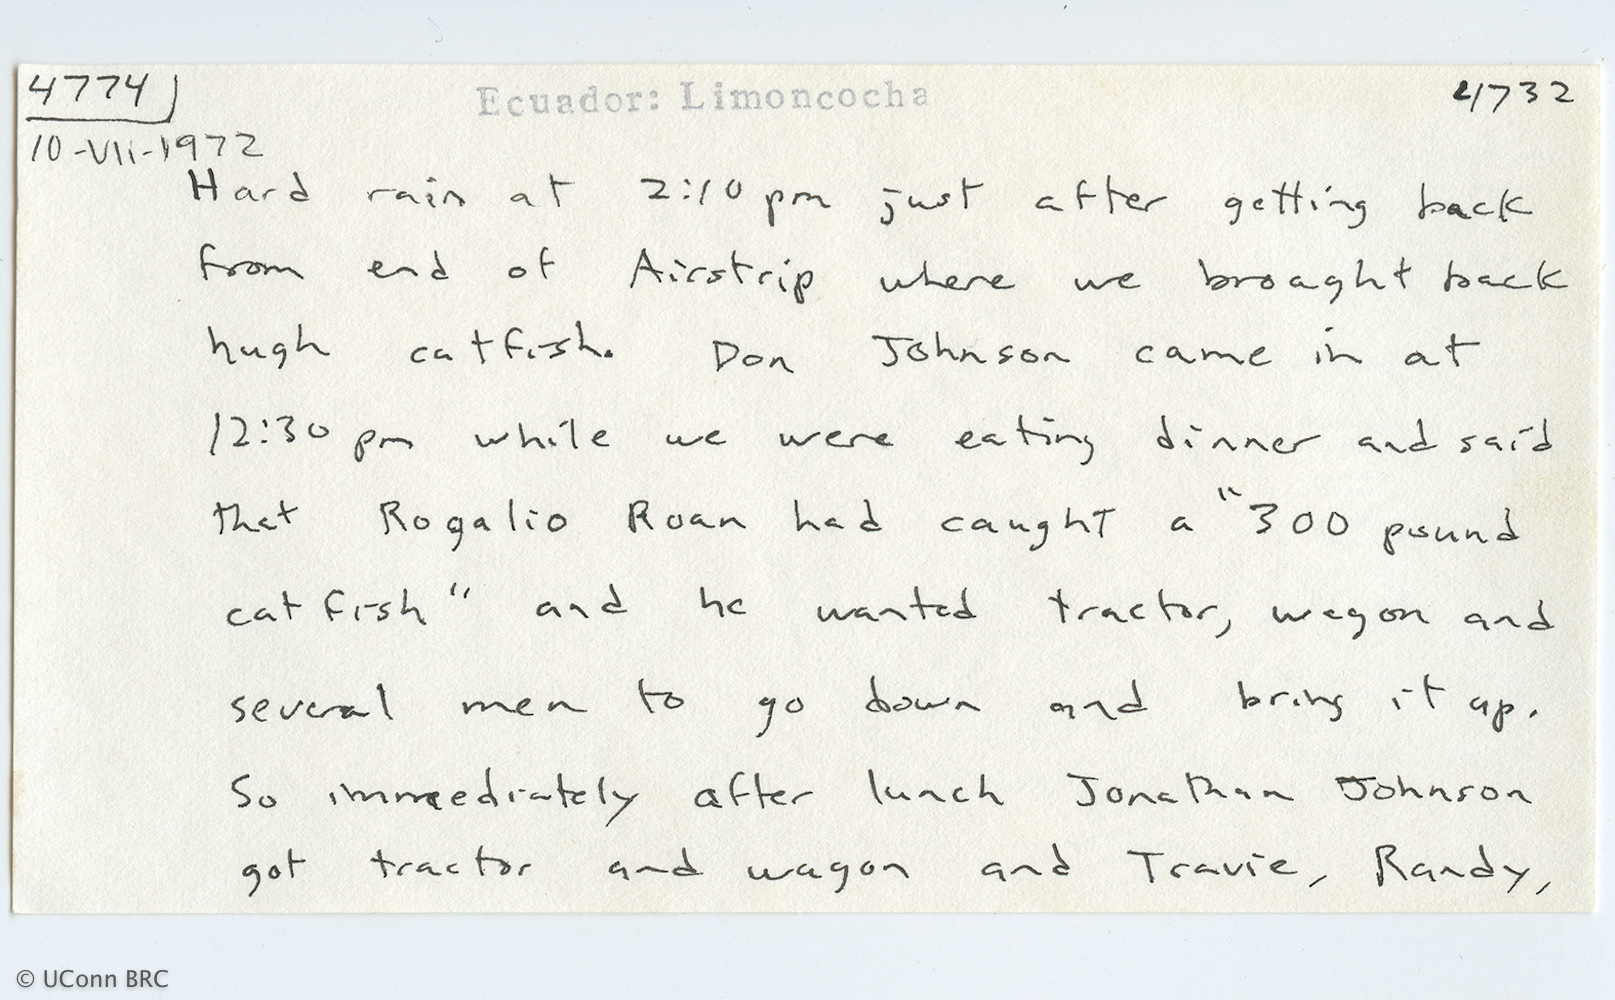 4774 Ecuador: Limoncocha 4732
10-VII-1972
Hard rain at 2:10 pm just after getting back
from end of Airstrip where we brought back
hugh catfish. Don Johnson came in at
12:30 pm while we were eating dinner and said
that Rogalio Roan had caught a "300 pound
catfish" and he wanted tractor, wagon and
several men to go down and bring it up.
So immediately after lunch Jonathan Johnson
got tractor and wagon and Travie, Randy,
© UConn BRC